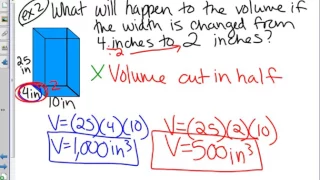 ex 2
What will happen to the volume if
the width is changed from
4 inches to 2 inches?
÷2
25
in
4in
2
10in
X Volume cut in half
V=(25)(4)(10)
V=1,000in³
V=(25)(2)(10)
V=500in³